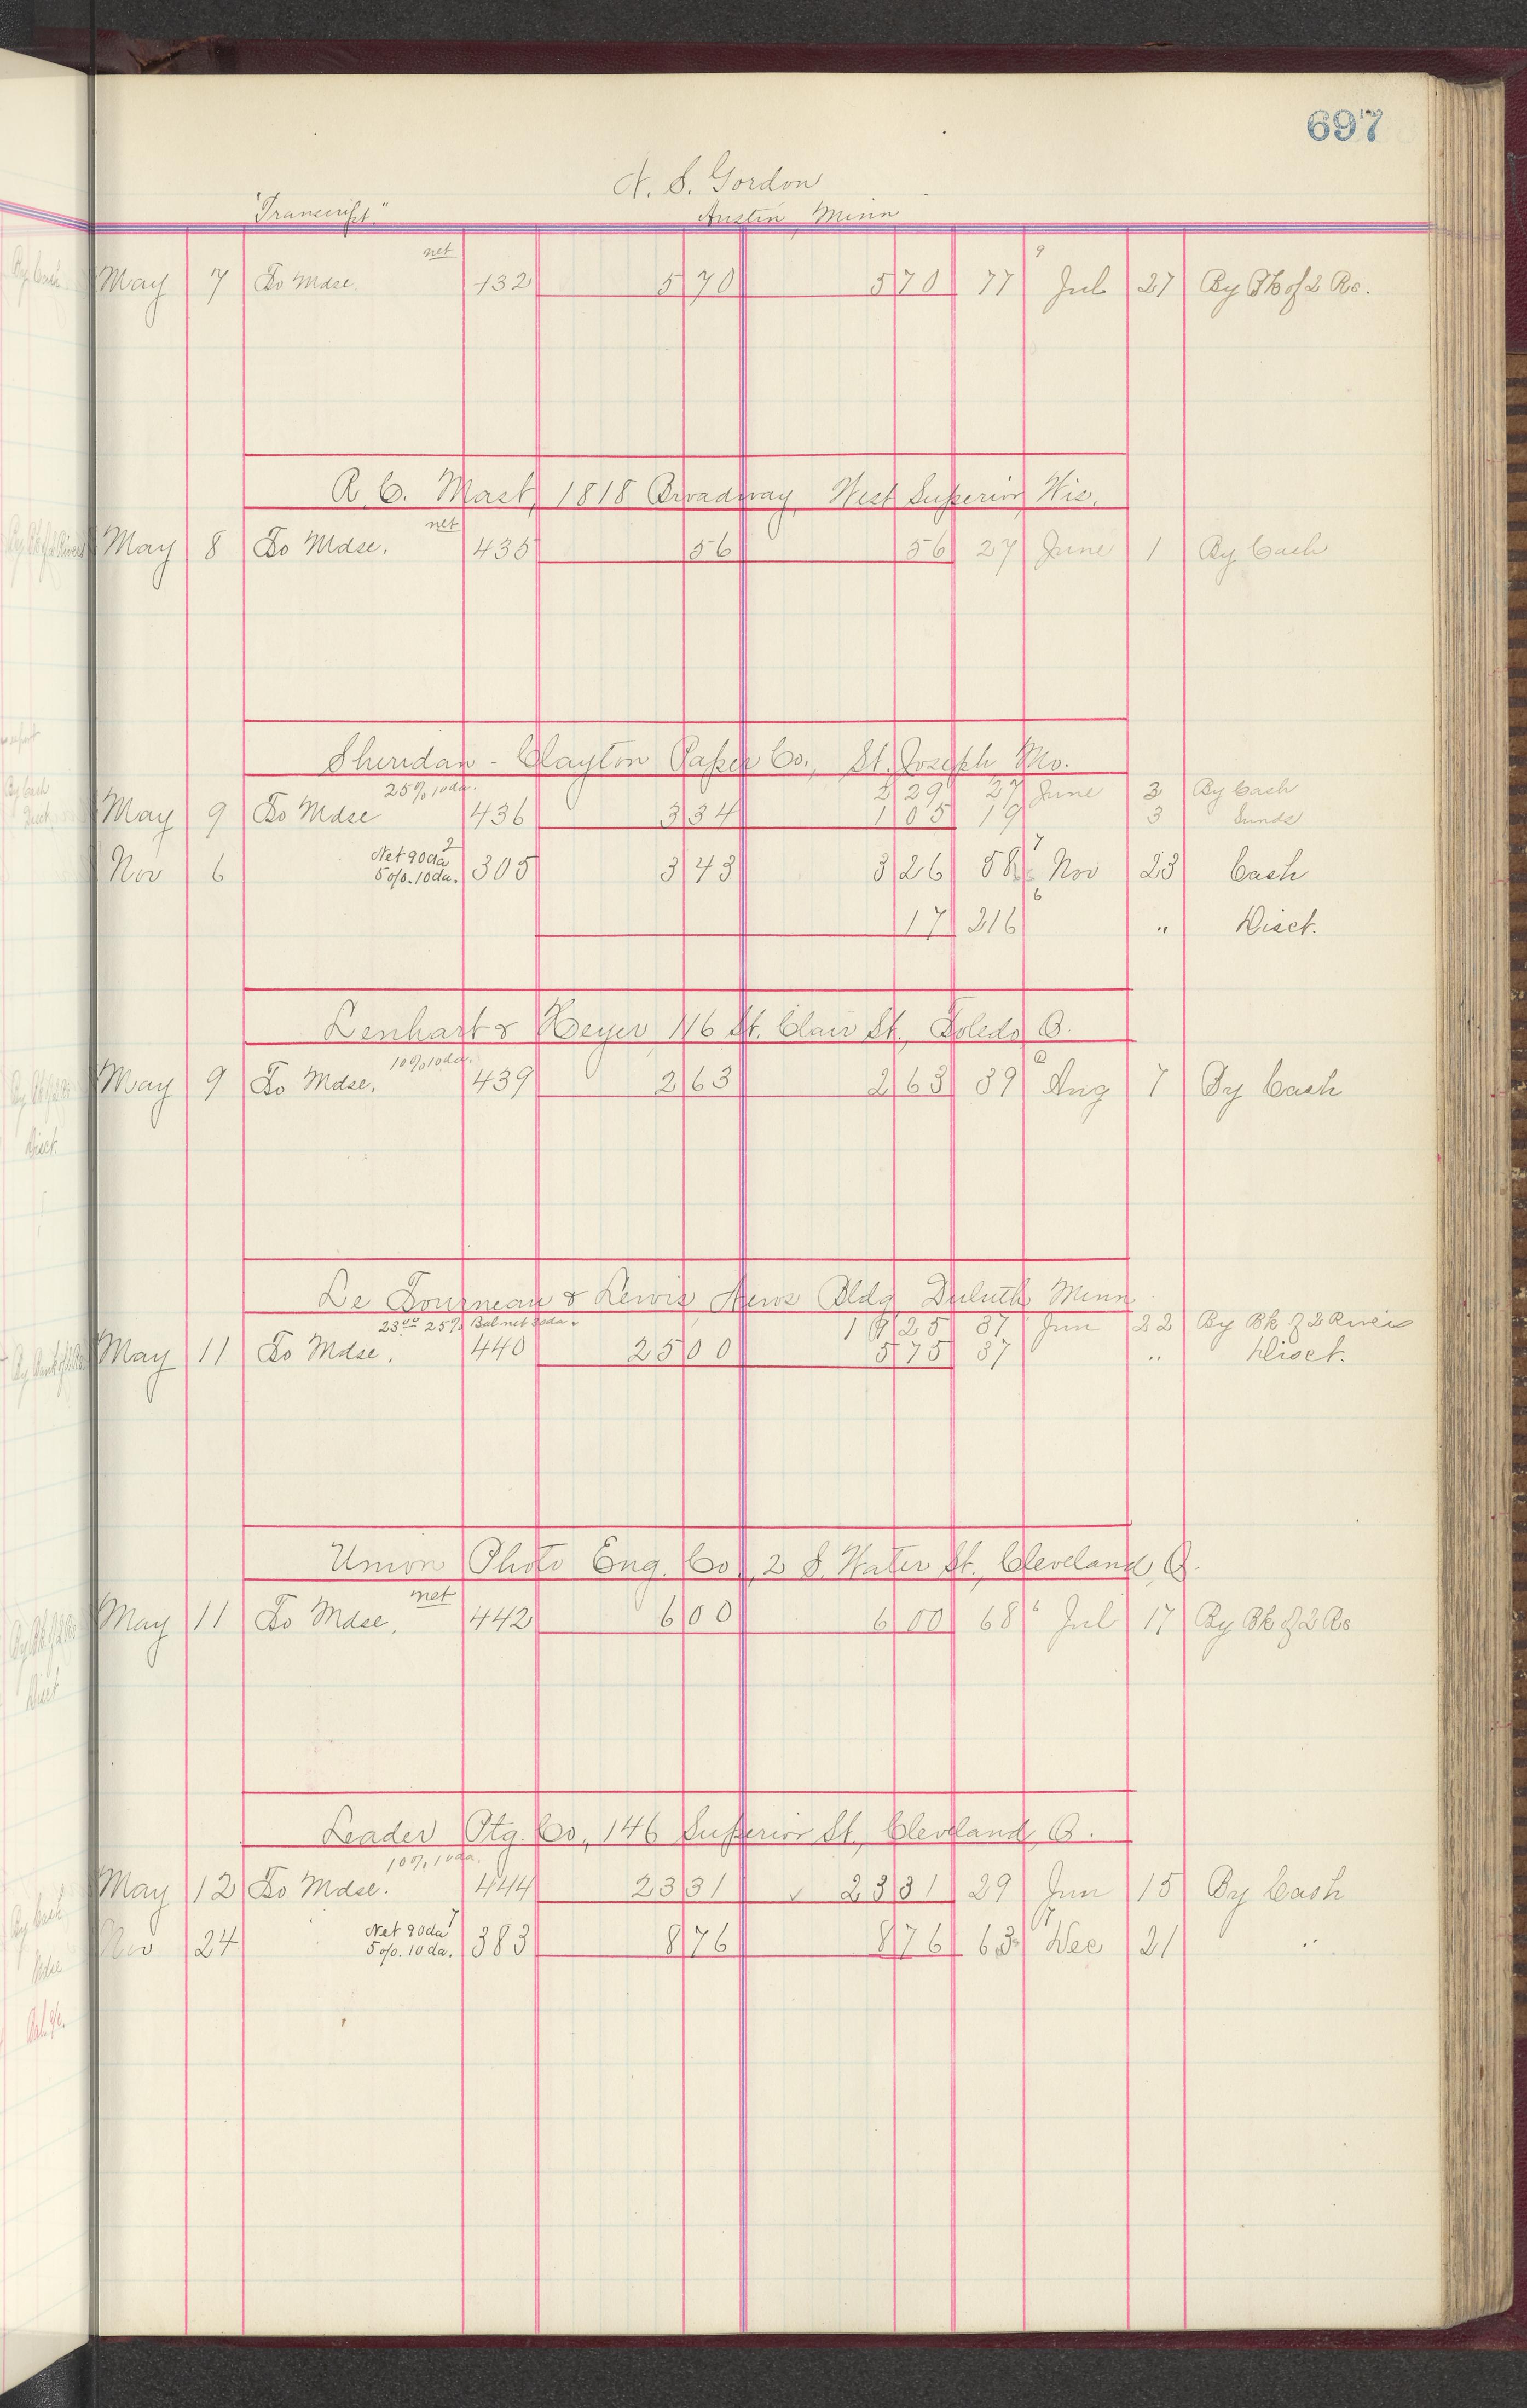 697
N. S. Gordon
"Transcript" Austin Minn
net
May 7 To Mdse. 132 5 70 5 70 77 9 Jul 27 By Bk of 2 Rs.
A. C. Mast, 1818 Broadway, West Superior, Wis.
net
May 8 To Mdse. 435 56 56 27 June 1 By Cash
Sheridan - Clayton Paper Co., St. Joseph Mo.
25% 10da. 2 29 27 June 3 By Cash
May 9 To Mdse 436 3 34 1 05 19 3 Sunds
Nov 6 Net 90da 2 5o/o. 10da. 305 3 43 3 26 58 7 Nov 23 Cash
17 216 6 " Disct.
Lenhart & Heyer 116 St. Clair St., Toledo O.
10% 10da.
May 9 To Mdse. 439 2 63 2 63 39 Aug 7 By Cash
Le Tourneau & Lewis News Bldg Duluth Minn
23oo 25% Bal net 30da. 19 25 37 Jun 22 By Bk of 2 Rivers
May 11 To Mdse. 440 25 00 5 75 37 " Disct.
Union Photo Eng. Co., 2 S. Water St., Cleveland, O.
net
May 11 To Mdse. 442 6 00 6 00 68 6 Jul 17 By Bk of 2 Rs
Leader Ptg. Co., 146 Superior St, Cleveland, O.
10% 10da.
May 12 To Mdse. 444 23 31 ✓ 23 31 29 Jun 15 By Cash
Nov 24 Net 90da 7 5o/o. 10da. 383 8 76 8 76 63 17 Dec 21 "